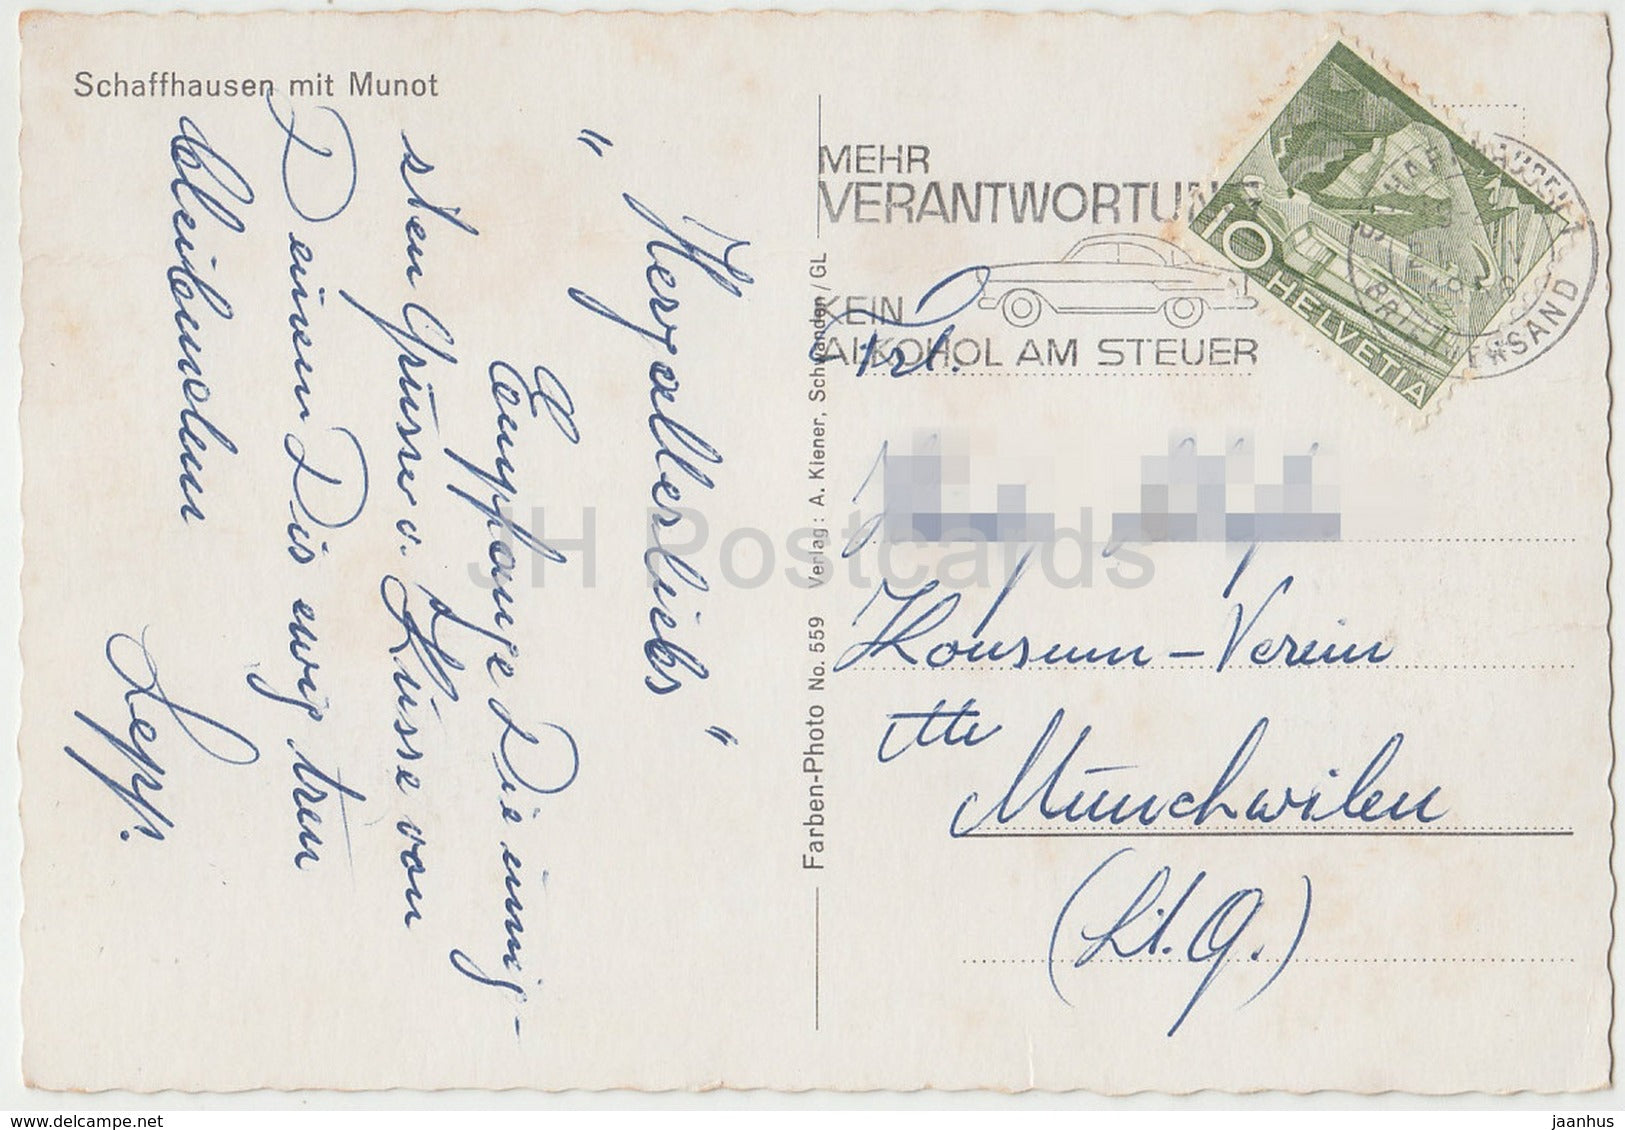 Schaffhausen mit Munot
" Herzallerliebs "
Empfange Die innig-
sten Grüsse u. Küsse von
Deinem Dis ewig treu
bleibendem
Sepp.
Farben-Photo No. 559 Verlag: A. Kiener, Schwanden/GL
MEHR
VERANTWORTUNG
KEIN
ALKOHOL AM STEUER
10
HELVETIA
SCHAFFHAUSEN 1
BRIEFVERSAND
Frl.
Konsum-Verein
Münchwilen
(Lt. G.)
JH Postcards
delcampe.net
jaanhus